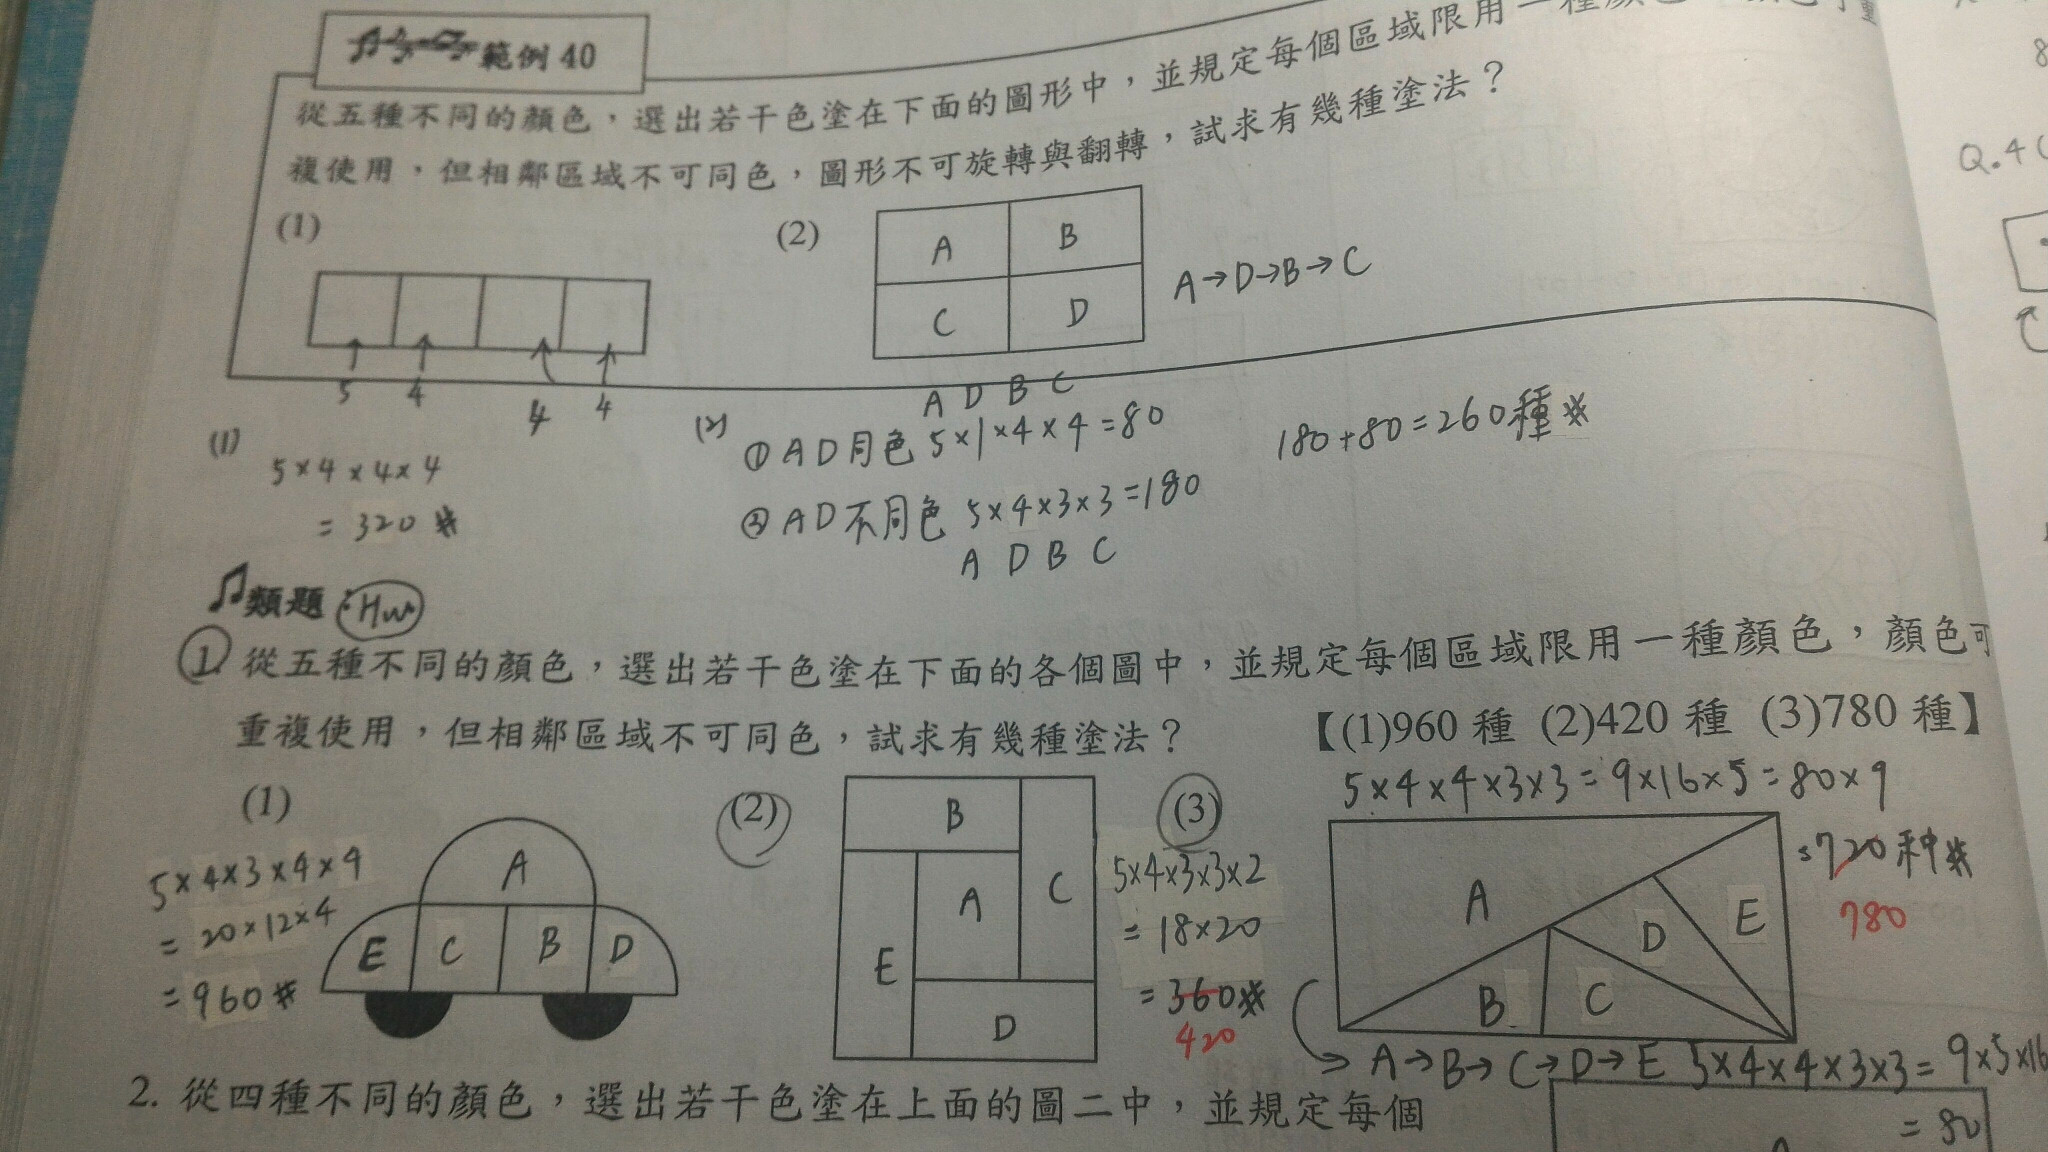 範例 40
從五種不同的顏色，選出若干色塗在下面的圖形中，並規定每個區域限用一種顏色
複使用，但相鄰區域不可同色，圖形不可旋轉與翻轉，試求有幾種塗法？
(1)
(2)
A B
C D
A→D→B→C
5 4 4 4
(1)
5×4×4×4
=320 #
(2)
A D B C
① AD同色 5×1×4×4=80
② AD不同色 5×4×3×3=180
A D B C
180+80=260種#
Q.4
類題：Hw
1. 從五種不同的顏色，選出若干色塗在下面的各個圖中，並規定每個區域限用一種顏色，顏色可
重複使用，但相鄰區域不可同色，試求有幾種塗法？ 【(1)960 種 (2)420 種 (3)780 種】
(1)
5×4×3×4×4
=20×12×4
=960#
A
E C B D
(2)
B
A C
E
D
(3)
5×4×3×3×2
=18×20
=360#
420
5×4×4×3×3=9×16×5=80×9
=720种#
780
A
D E
B C
→A→B→C→D→E 5×4×4×3×3=9×5×16
=80
2. 從四種不同的顏色，選出若干色塗在上面的圖二中，並規定每個